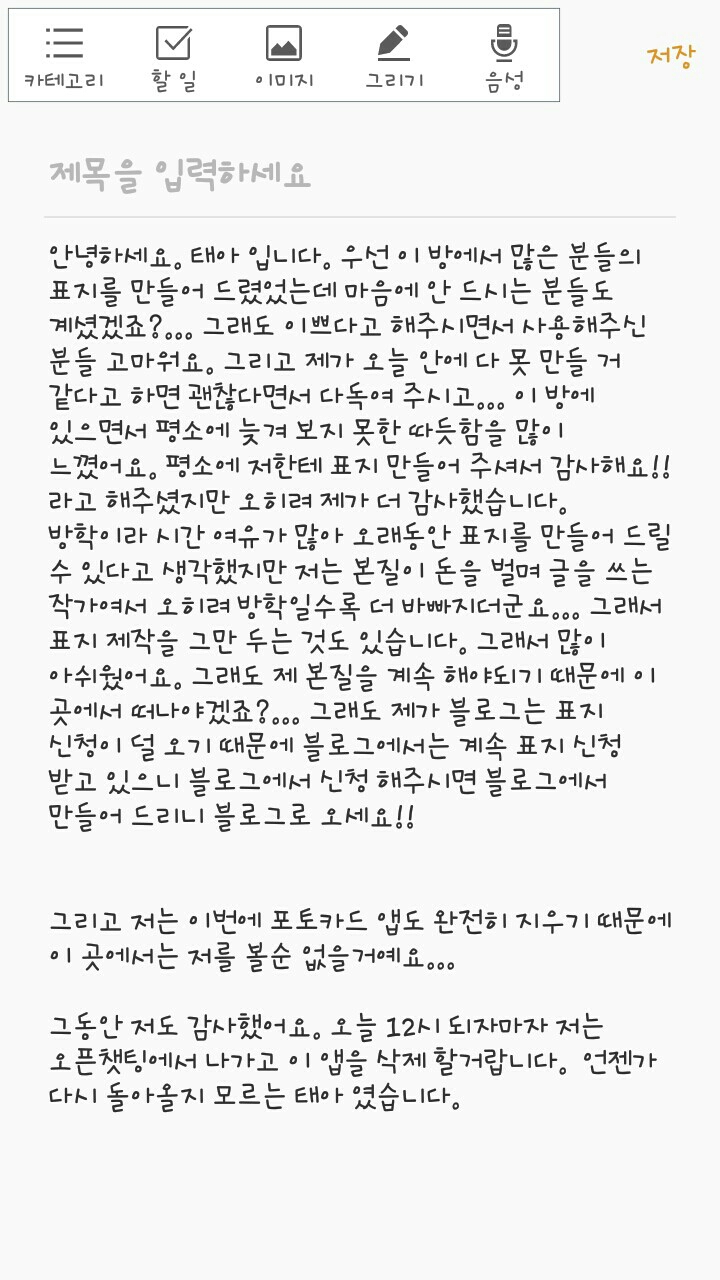 카테고리 할 일 이미지 그리기 음성 저장
제목을 입력하세요
안녕하세요. 태아 입니다. 우선 이 방에서 많은 분들의
표지를 만들어 드렸었는데 마음에 안 드시는 분들도
계셨겠죠?... 그래도 이쁘다고 해주시면서 사용해주신
분들 고마워요. 그리고 제가 오늘 안에 다 못 만들 거
같다고 하면 괜찮다면서 다독여 주시고... 이 방에
있으면서 평소에 늦겨 보지 못한 따듯함을 많이
느꼈어요. 평소에 저한테 표지 만들어 주셔서 감사해요!!
라고 해주셨지만 오히려 제가 더 감사했습니다.
방학이라 시간 여유가 많아 오래동안 표지를 만들어 드릴
수 있다고 생각했지만 저는 본질이 돈을 벌며 글을 쓰는
작가여서 오히려 방학일수록 더 바빠지더군요... 그래서
표지 제작을 그만 두는 것도 있습니다. 그래서 많이
아쉬웠어요. 그래도 제 본질을 계속 해야되기 때문에 이
곳에서 떠나야겠죠?... 그래도 제가 블로그는 표지
신청이 덜 오기 때문에 블로그에서는 계속 표지 신청
받고 있으니 블로그에서 신청 해주시면 블로그에서
만들어 드리니 블로그로 오세요!!
그리고 저는 이번에 포토카드 앱도 완전히 지우기 때문에
이 곳에서는 저를 볼순 없을거예요...
그동안 저도 감사했어요. 오늘 12시 되자마자 저는
오픈챗팅에서 나가고 이 앱을 삭제 할거랍니다. 언젠가
다시 돌아올지 모르는 태아 였습니다.